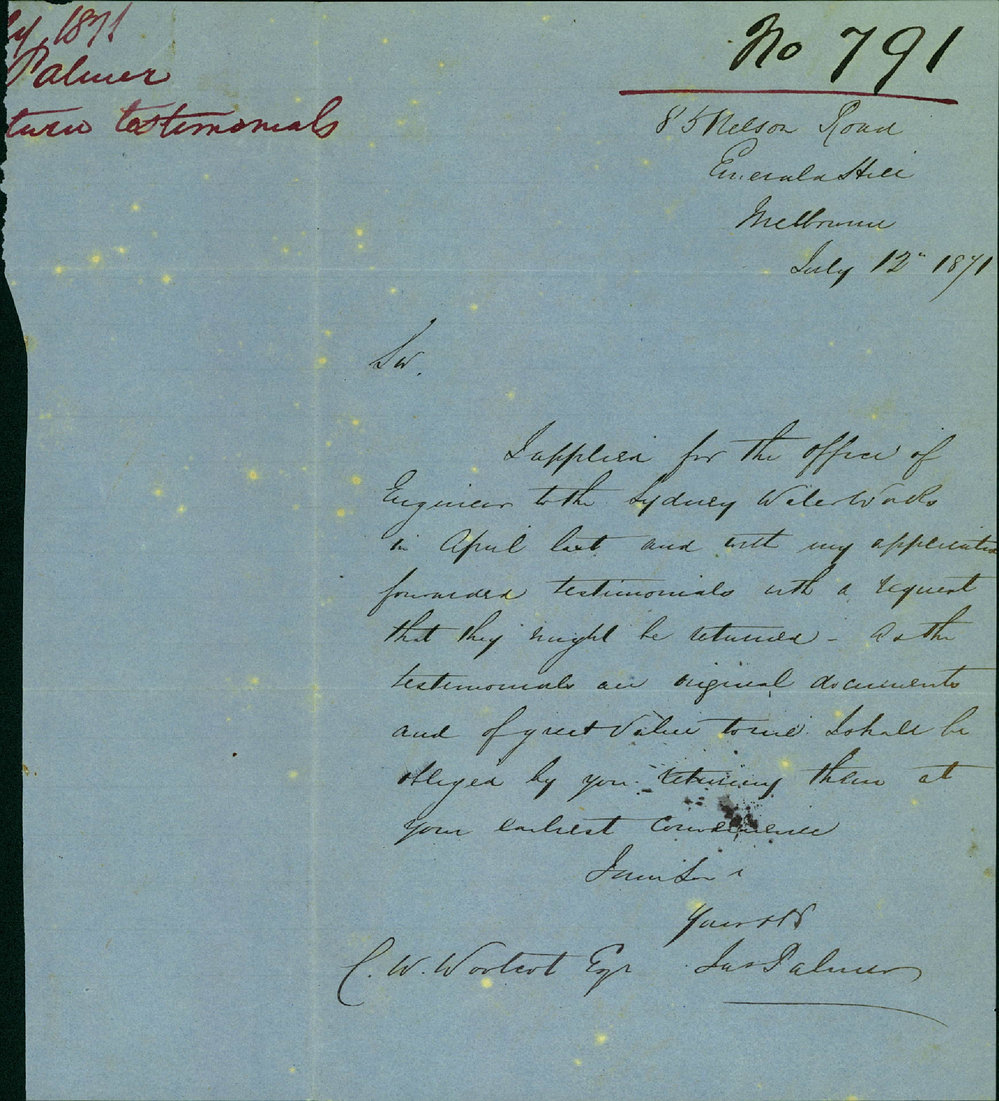 ly 1871
Palmer
turn testimonials
No 791
85 Nelson Road
Emerald Hill
Melbourne
July 12th 1871
Sir,
I applied for the office of
Engineer to the Sydney Water Works
in April last and with my application
forwarded testimonials with a request
that they might be returned - As the
testimonials are original documents
and of great value to me I shall be
obliged by you returning them at
your earliest convenience
I am Sir
Yours
C. W. Woolcot Esqr
Jas Palmer